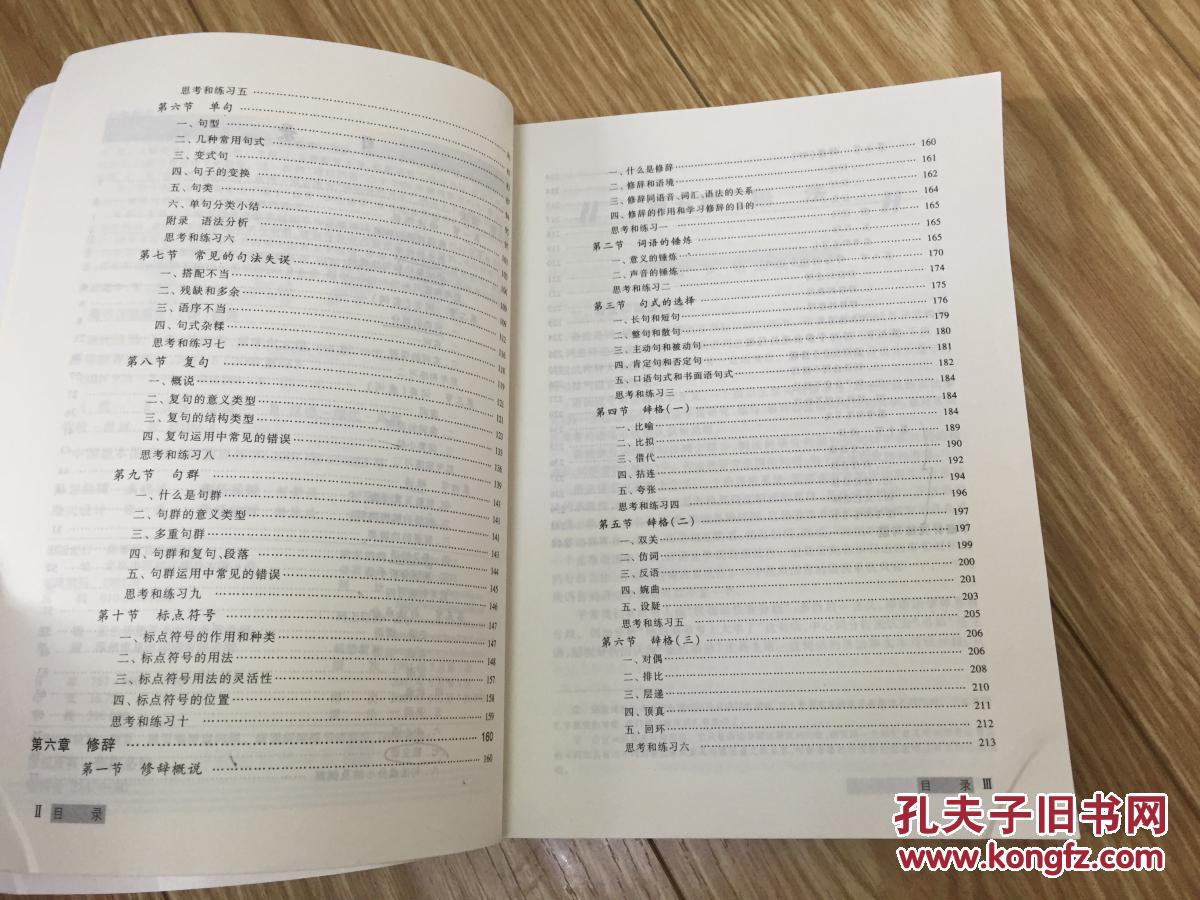 思考和练习五
第六节 单句
一、句型
二、几种常用句式
三、变式句
四、句子的变换
五、句类
六、单句分类小结
附录 语法分析
思考和练习六
第七节 常见的句法失误
一、搭配不当
二、残缺和多余
三、语序不当
四、句式杂糅
思考和练习七
第八节 复句
一、概说 121
二、复句的意义类型 121
三、复句的结构类型
四、复句运用中常见的错误
思考和练习八
第九节 句群
一、什么是句群 141
二、句群的意义类型 141
三、多重句群 143
四、句群和复句、段落 144
五、句群运用中常见的错误 145
思考和练习九 146
第十节 标点符号 147
一、标点符号的作用和种类 147
二、标点符号的用法 148
三、标点符号用法的灵活性 157
四、标点符号的位置 158
思考和练习十 159
第六章 修辞 160
第一节 修辞概说 160
Ⅱ 目 录
一、什么是修辞 160
二、修辞和语境 161
三、修辞同语音、词汇、语法的关系 162
四、修辞的作用和学习修辞的目的 164
思考和练习一 165
第二节 词语的锤炼 165
一、意义的锤炼 165
二、声音的锤炼 170
思考和练习二 174
第三节 句式的选择 175
一、长句和短句 176
二、整句和散句 179
三、主动句和被动句 180
四、肯定句和否定句 181
五、口语句式和书面语句式 182
思考和练习三 184
第四节 辞格(一) 184
一、比喻 184
二、比拟 189
三、借代 190
四、拈连 192
五、夸张 194
思考和练习四 196
第五节 辞格(二) 197
一、双关 197
二、仿词 199
三、反语 200
四、婉曲 201
五、设疑 203
思考和练习五 205
第六节 辞格(三) 206
一、对偶 206
二、排比 208
三、层递 210
四、顶真 211
五、回环 212
思考和练习六 213
目 录 Ⅲ
孔夫子旧书网
www.kongfz.com